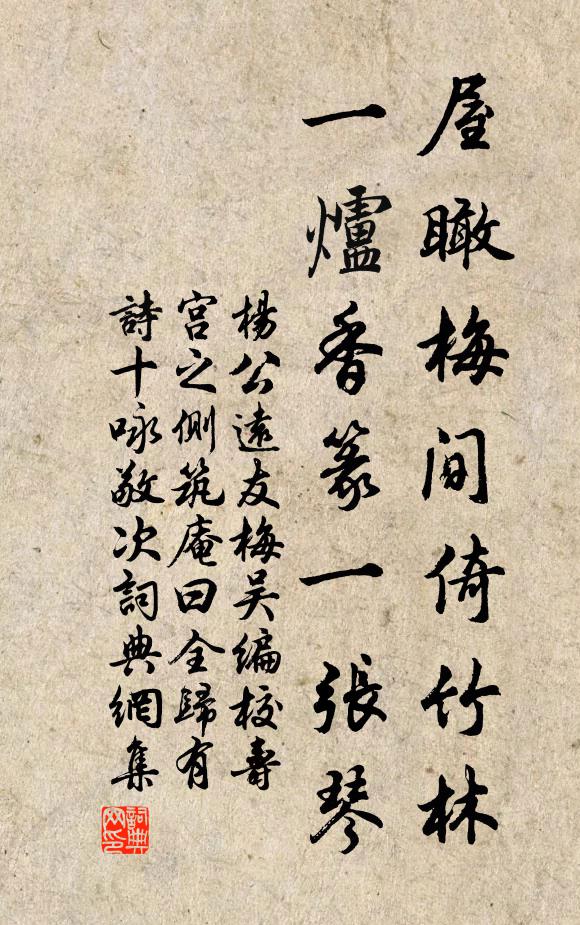 屋瞰梅間倚竹林
一爐香篆一張琴
楊公遠友梅吴編校壽
宫之側筑庵曰全歸有
詩十咏敬次詞典網集
詞典
网印